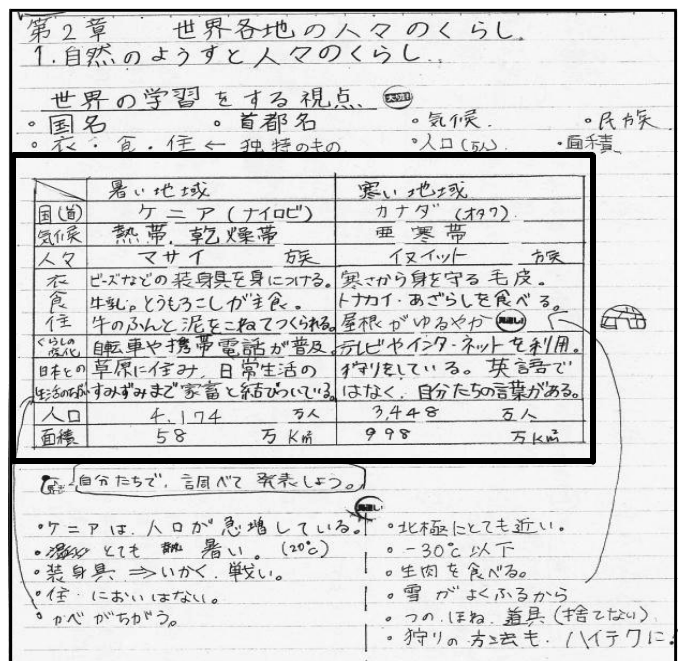 第2章 世界各地の人々のくらし
1.自然のようすと人々のくらし
世界の学習をする視点
・国名 ・首都名 ・気候 ・民族
・衣・食・住 ← 独特のもの ・人口(万人) ・面積
暑い地域 寒い地域
国(首) ケニア(ナイロビ) カナダ(オタワ)
気候 熱帯、乾燥帯 亜寒帯
人々 マサイ 族 イヌイット 族
衣 ビーズなどの装身具を身につける。 寒さから身を守る毛皮。
食 牛乳。とうもろこしが主食。 トナカイ・あざらしを食べる。
住 牛のふんと泥をこねてつくられる。 屋根がゆるやか
くらしの変化 自転車や携帯電話が普及。 テレビやインターネットを利用。
日本との 草原に住み、日常生活の 狩りをしている。英語で
生活のちがい すみずみまで家畜と結びついている。 はなく、自分たちの言葉がある。
人口 4,174 万人 3,448 万人
面積 58 万km² 998 万km²
自分たちで、調べて発表しよう。
・ケニアは、人口が急増している。 ・北極にとても近い。
・とても 暑い。(20℃) ・-30℃以下
・装身具 ⇒いかく、戦い。 ・生肉を食べる。
・住・においはない。 ・雪がよくふるから
・かべがちがう。 ・つの、ほね、道具(捨てない)
・狩りの方法も、ハイテクに!